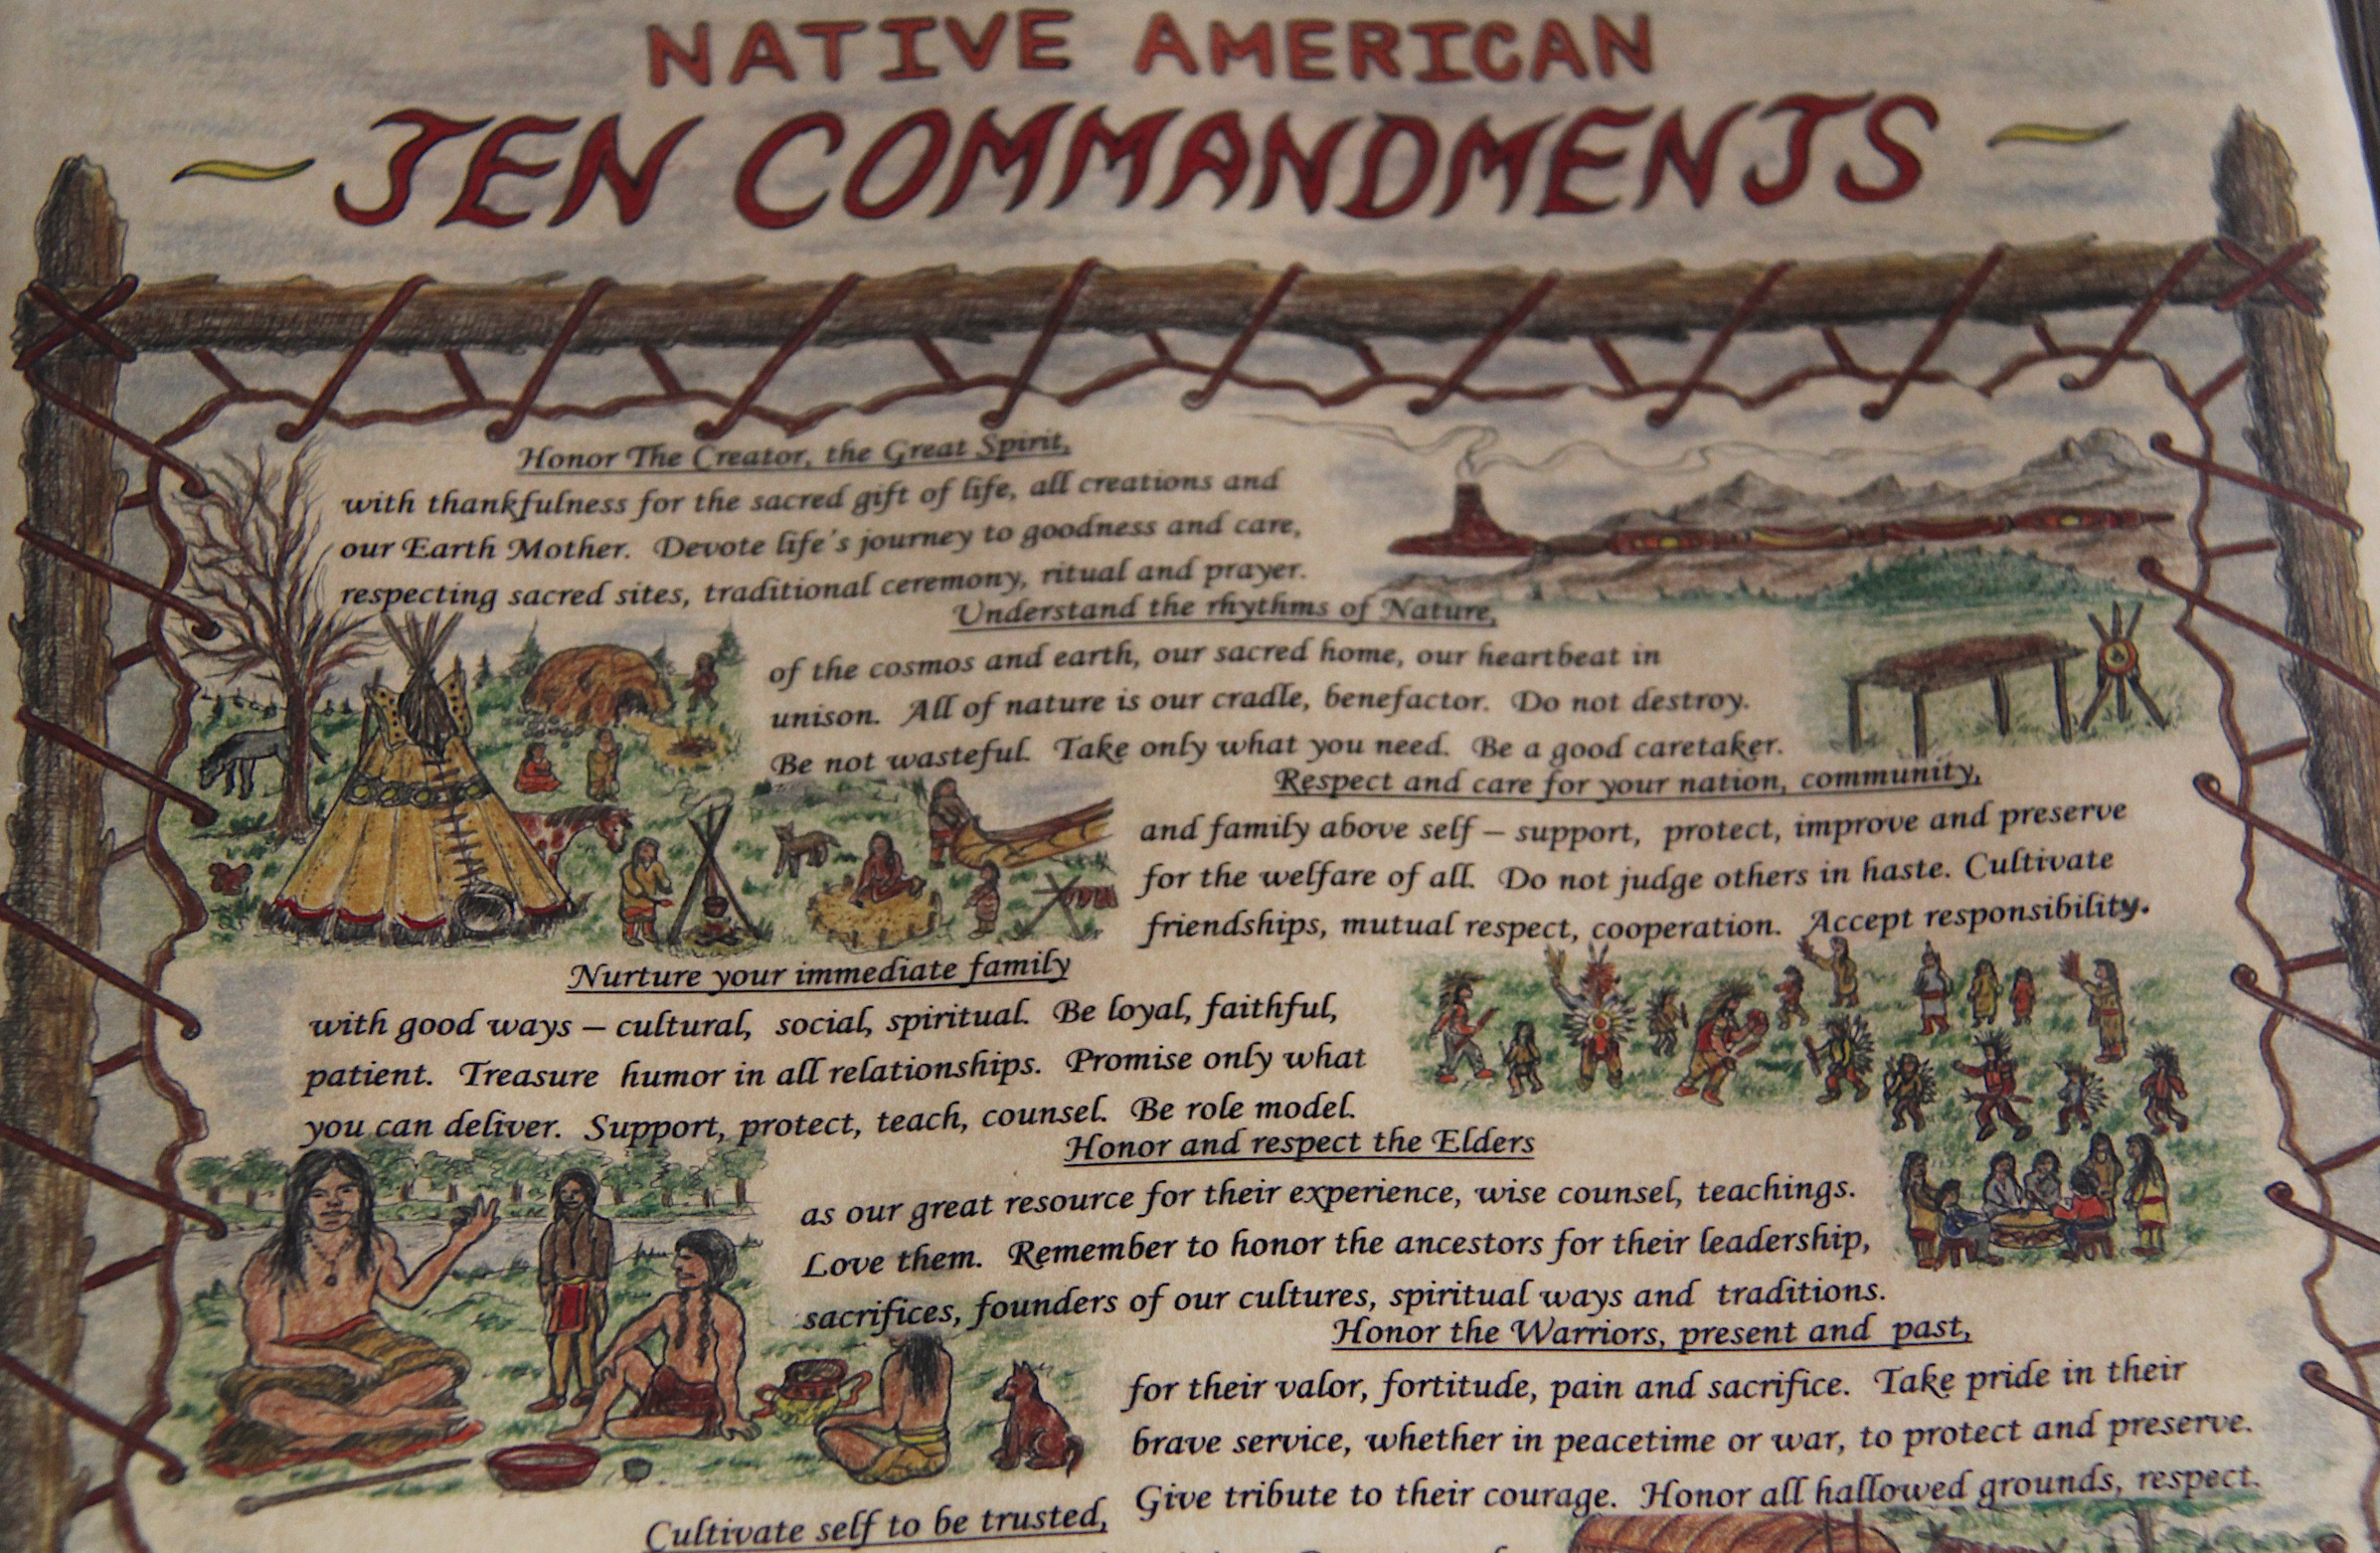 NATIVE AMERICAN
~ TEN COMMANDMENTS ~
Honor The Creator, the Great Spirit,
with thankfulness for the sacred gift of life, all creations and
our Earth Mother. Devote life's journey to goodness and care,
respecting sacred sites, traditional ceremony, ritual and prayer.
Understand the rhythms of Nature,
of the cosmos and earth, our sacred home, our heartbeat in
unison. All of nature is our cradle, benefactor. Do not destroy.
Be not wasteful. Take only what you need. Be a good caretaker.
Respect and care for your nation, community,
and family above self – support, protect, improve and preserve
for the welfare of all. Do not judge others in haste. Cultivate
friendships, mutual respect, cooperation. Accept responsibility.
Nurture your immediate family
with good ways – cultural, social, spiritual. Be loyal, faithful,
patient. Treasure humor in all relationships. Promise only what
you can deliver. Support, protect, teach, counsel. Be role model.
Honor and respect the Elders
as our great resource for their experience, wise counsel, teachings.
Love them. Remember to honor the ancestors for their leadership,
sacrifices, founders of our cultures, spiritual ways and traditions.
Honor the Warriors, present and past,
for their valor, fortitude, pain and sacrifice. Take pride in their
brave service, whether in peacetime or war, to protect and preserve.
Give tribute to their courage. Honor all hallowed grounds, respect.
Cultivate self to be trusted,